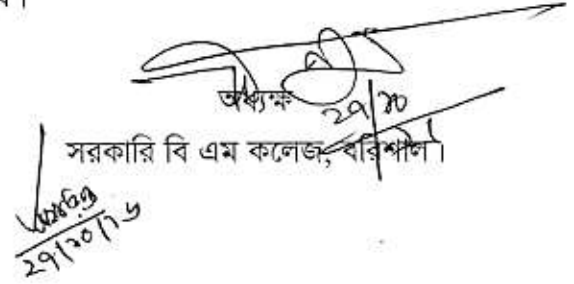 অধ্যক্ষ
২৭/১০
সরকারি বি এম কলেজ, বরিশাল।
২৭/১০/১৬